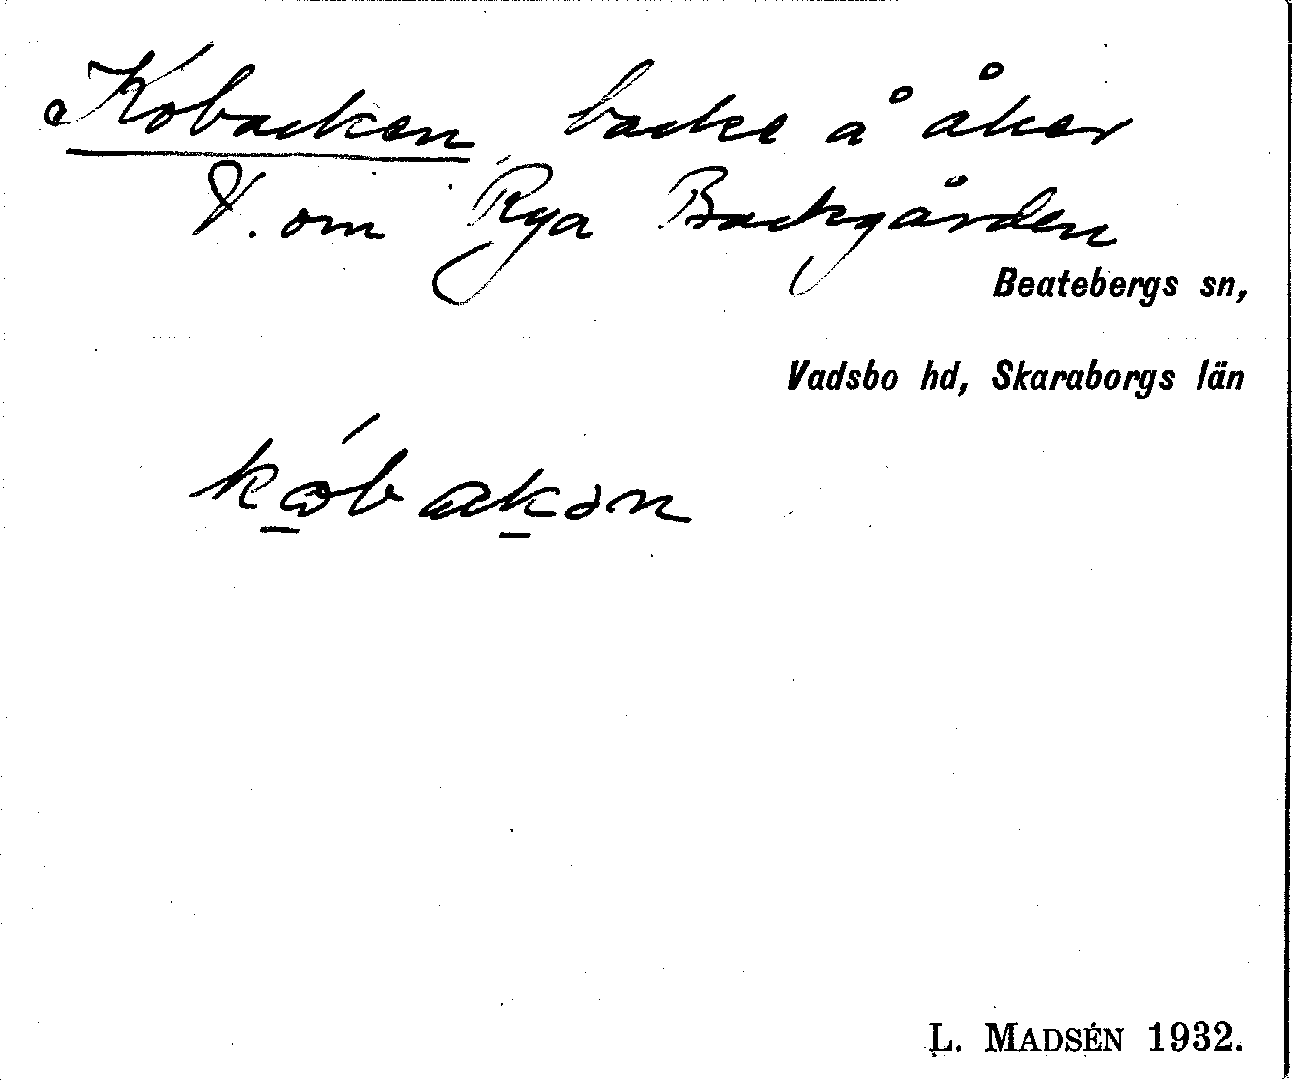 Kobacken, backe å åker
V. om Rya Backgården
Beatebergs sn,
Vadsbo hd, Skaraborgs län
L. MADSÉN 1932.